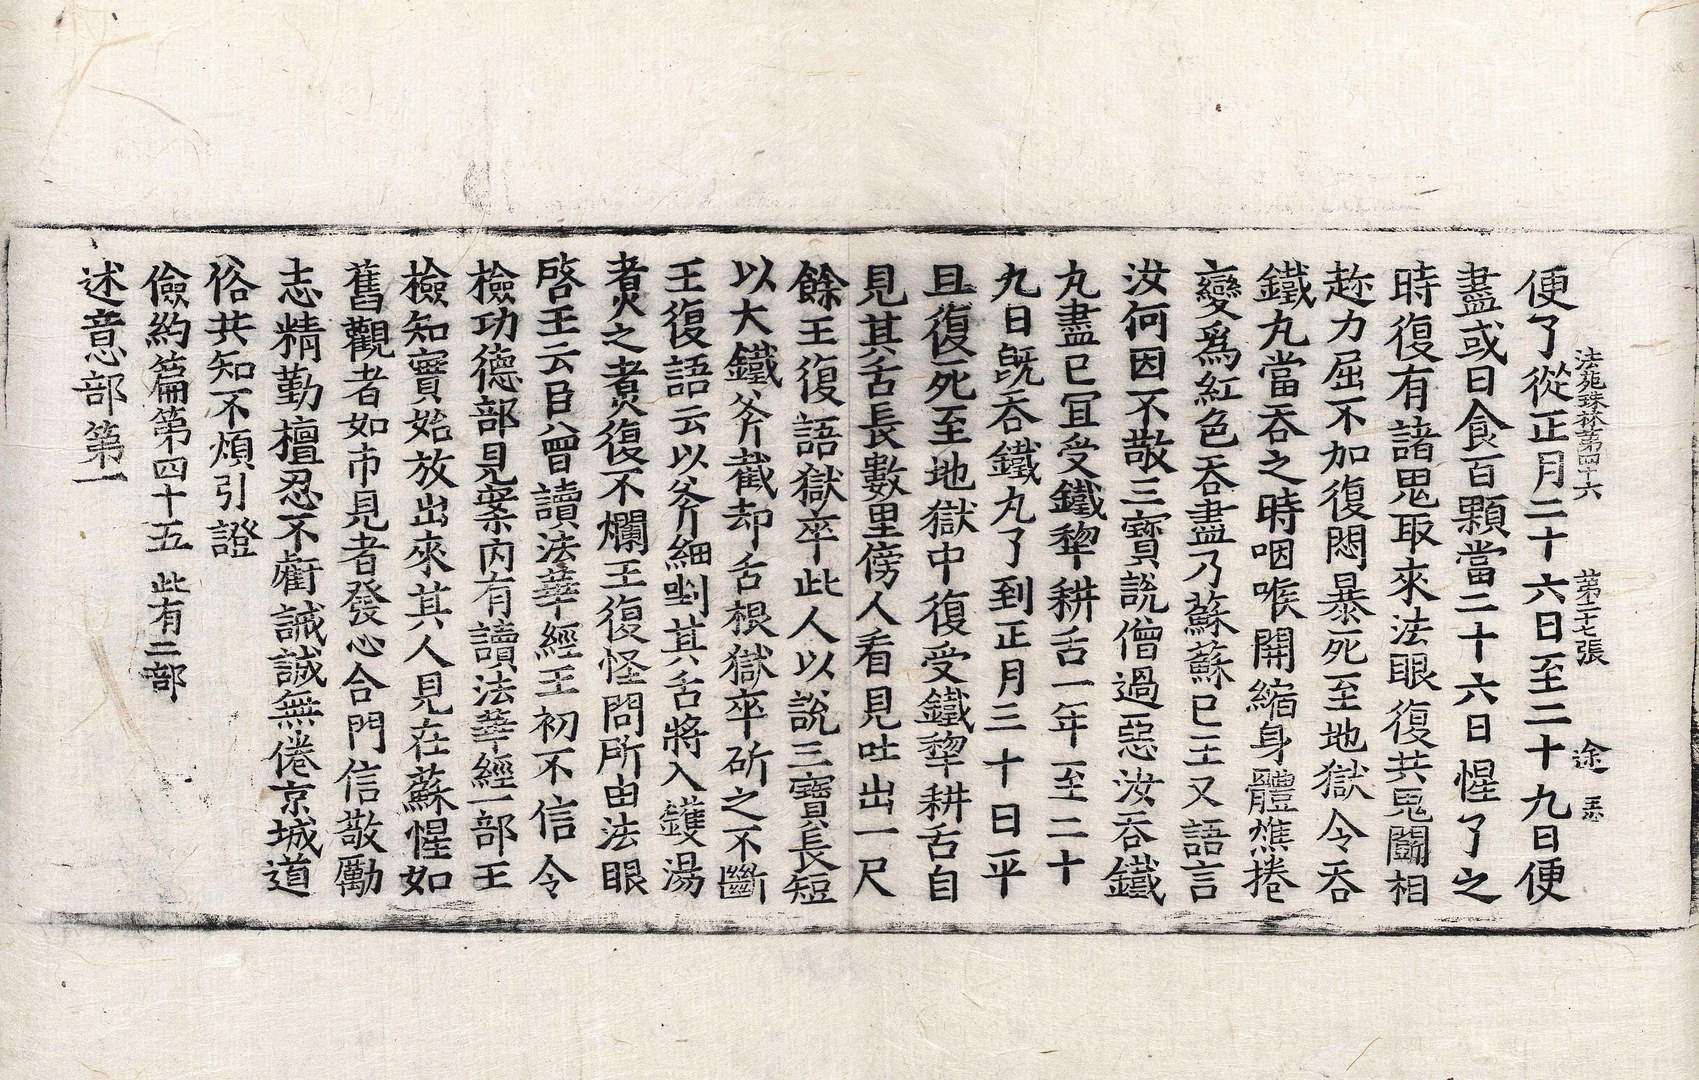 法苑珠林第四十六　第二十七張　途　恚
便了從正月二十六日至二十九日便
盡或日食百顆當二十六日惺了之
時復有諸鬼取來法眼復共鬼鬪相
趂力屈不加復悶暴死至地獄令吞
鐵丸當吞之時咽喉開縮身體燋捲
變爲紅色吞盡乃蘇蘇已王又語言
汝何因不敬三寶說僧過惡汝吞鐵
丸盡已冝受鐵犂耕舌一年至二十
九日旣吞鐵丸了到正月三十日平
旦復死至地獄中復受鐵犂耕舌自
見其舌長數里傍人看見吐出一尺
餘王復語獄卒此人以說三寶長短
以大鐵斧截却舌根獄卒斫之不斷
王復語云以斧細剉其舌將入鑊湯
煮之煮復不爛王復怪問所由法眼
啓王云臣曾讀法華經王初不信令
檢功德部見案內有讀法華經一部王
檢知實始放出來其人見在蘇惺如
舊觀者如市見者發心合門信敬勵
志精勤檀忍不虧誡誠無倦京城道
俗共知不煩引證
儉約篇第四十五　此有二部
述意部第一